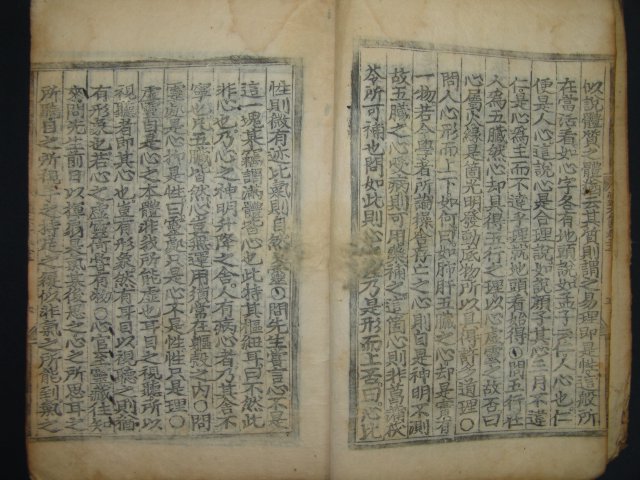 以說體質之體猶云其質則謂之易理即是性這般所
在當活看如心字各有地頭說如孟子云仁人心也仁
便是人心這說心是合理說如說顏子其心三月不違
仁是心為主而不違乎理就地頭看始得○問五行在
人為五臟然心却具得五行之理以心虛靈之故否曰
心屬火緣是箇光明發動底物所以具得許多道理○
問人心形而上下如何曰如肺肝五臟之心却是實有
一物若今學者所論操舍存亡之心則自是神明不測
故五臟之心受病則可用藥補之這箇心則非菖蒲茯
苓所可補也問如此則心之理乃是形而上否曰心比
性則微有迹比氣則自然又靈○問先生嘗言心不是
這一塊某竊謂滿體皆心也此特其樞紐耳曰不然此
非心也乃心之神明升降之舍人有病心者乃其舍不
寧也凡五臟皆然心豈無運用須常在軀殼之內○問
靈處是心抑是性曰靈處只是心不是性性只是理○
虛靈自是心之本體非我所能虛也耳目之視聽所以
視聽者即其心也豈有形象然有耳目以視聽之則猶
有形象也若心之虛靈何嘗有物○心官至靈藏往知
來問先生前日以揮扇是氣某後思之心之所思耳之
所聽目之所視手之持足之履似非氣之所能到氣之